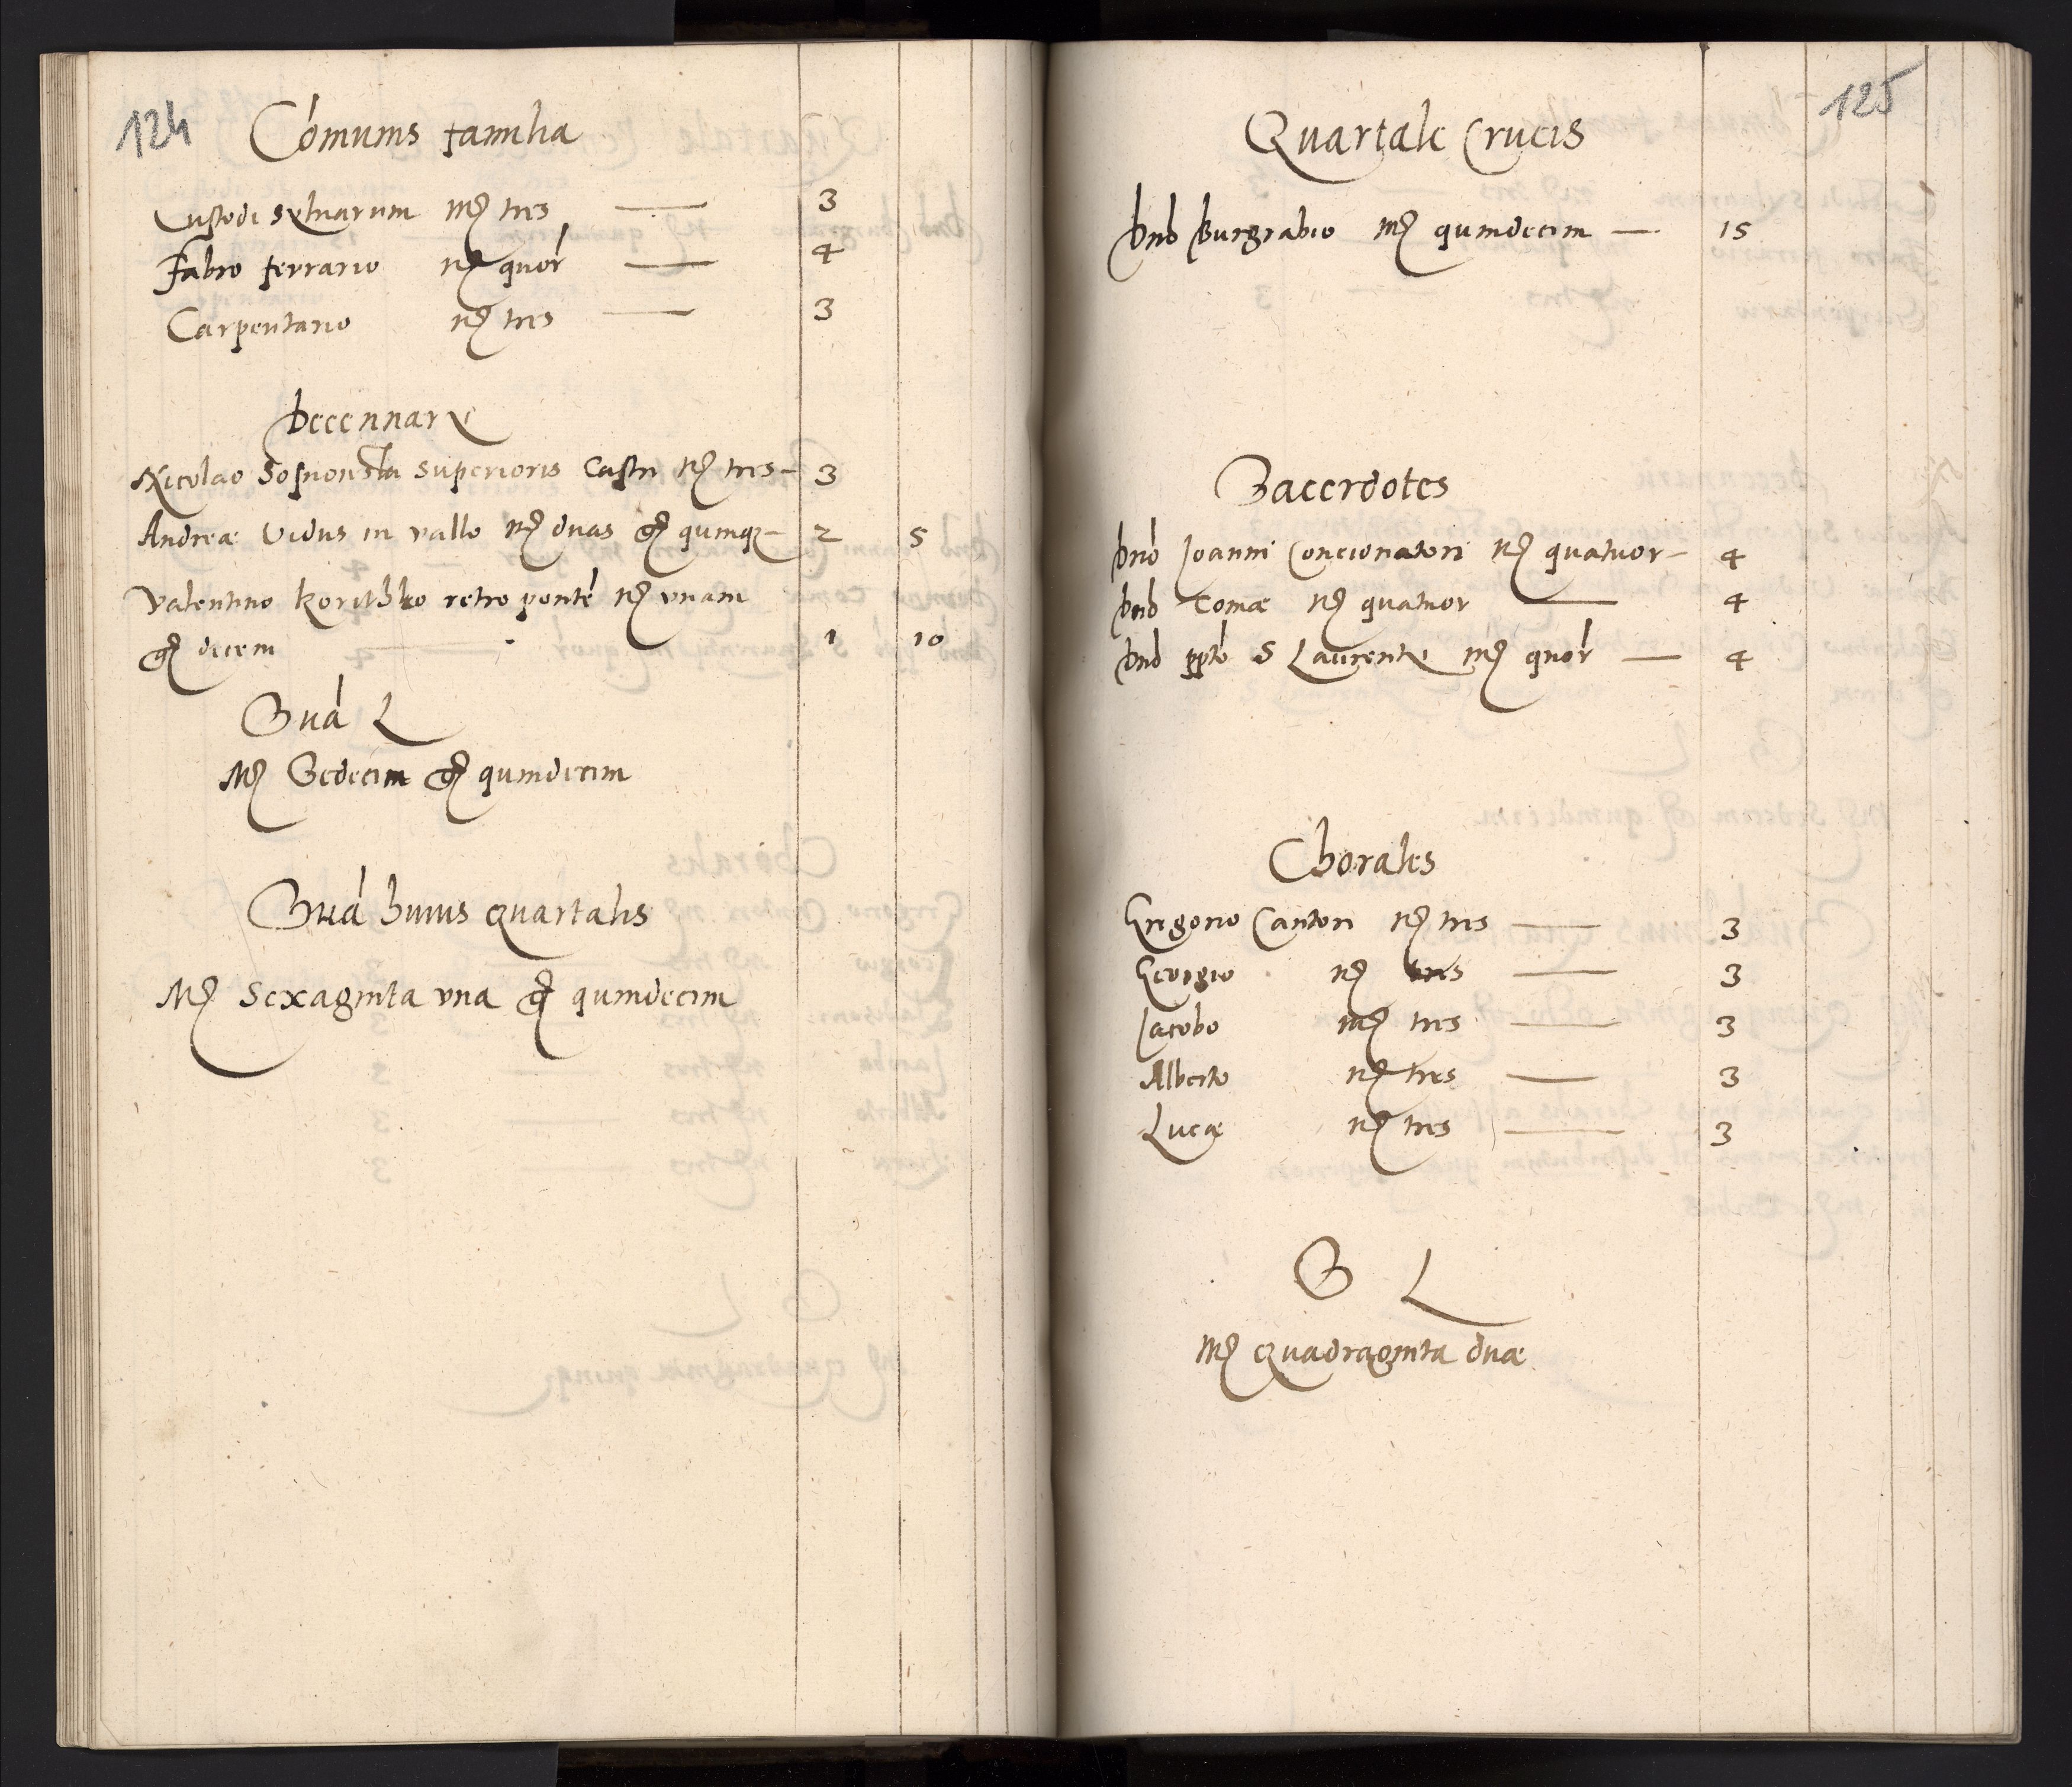 124
Com̄unis familia
Custodi Syluarum mȝ tres — 3
Fabro ferrario mȝ quor̄ — 4
Carpentario mȝ tres — 3
Decennarÿ
Nicolao superioris Castri mȝ tres — 3
Andreæ Vidus in vallo mȝ duas gȝ quinqȝ — 2 5
Valentino retro pontē mȝ vnam
gȝ decem — 1 10
Suā L
Mȝ Sedecim gȝ quindecim
Suā huius quartalis
Mȝ Sexaginta vna gȝ quindecim
125
Quartale Crucis
Dnō Burgrabio mȝ quindecim — 15
Sacerdotes
Dnō Joanni Concionatori mȝ quatuor — 4
Dnō Tomæ mȝ quatuor — 4
Dnō pptō S Laurentÿ mȝ quor̄ — 4
Chorales
Gregorio Cantori mȝ tres — 3
Georgio mȝ tres — 3
Jacobo mȝ tres — 3
Alberto mȝ tres — 3
Lucæ mȝ tres — 3
S L
Mȝ Quadraginta duæ